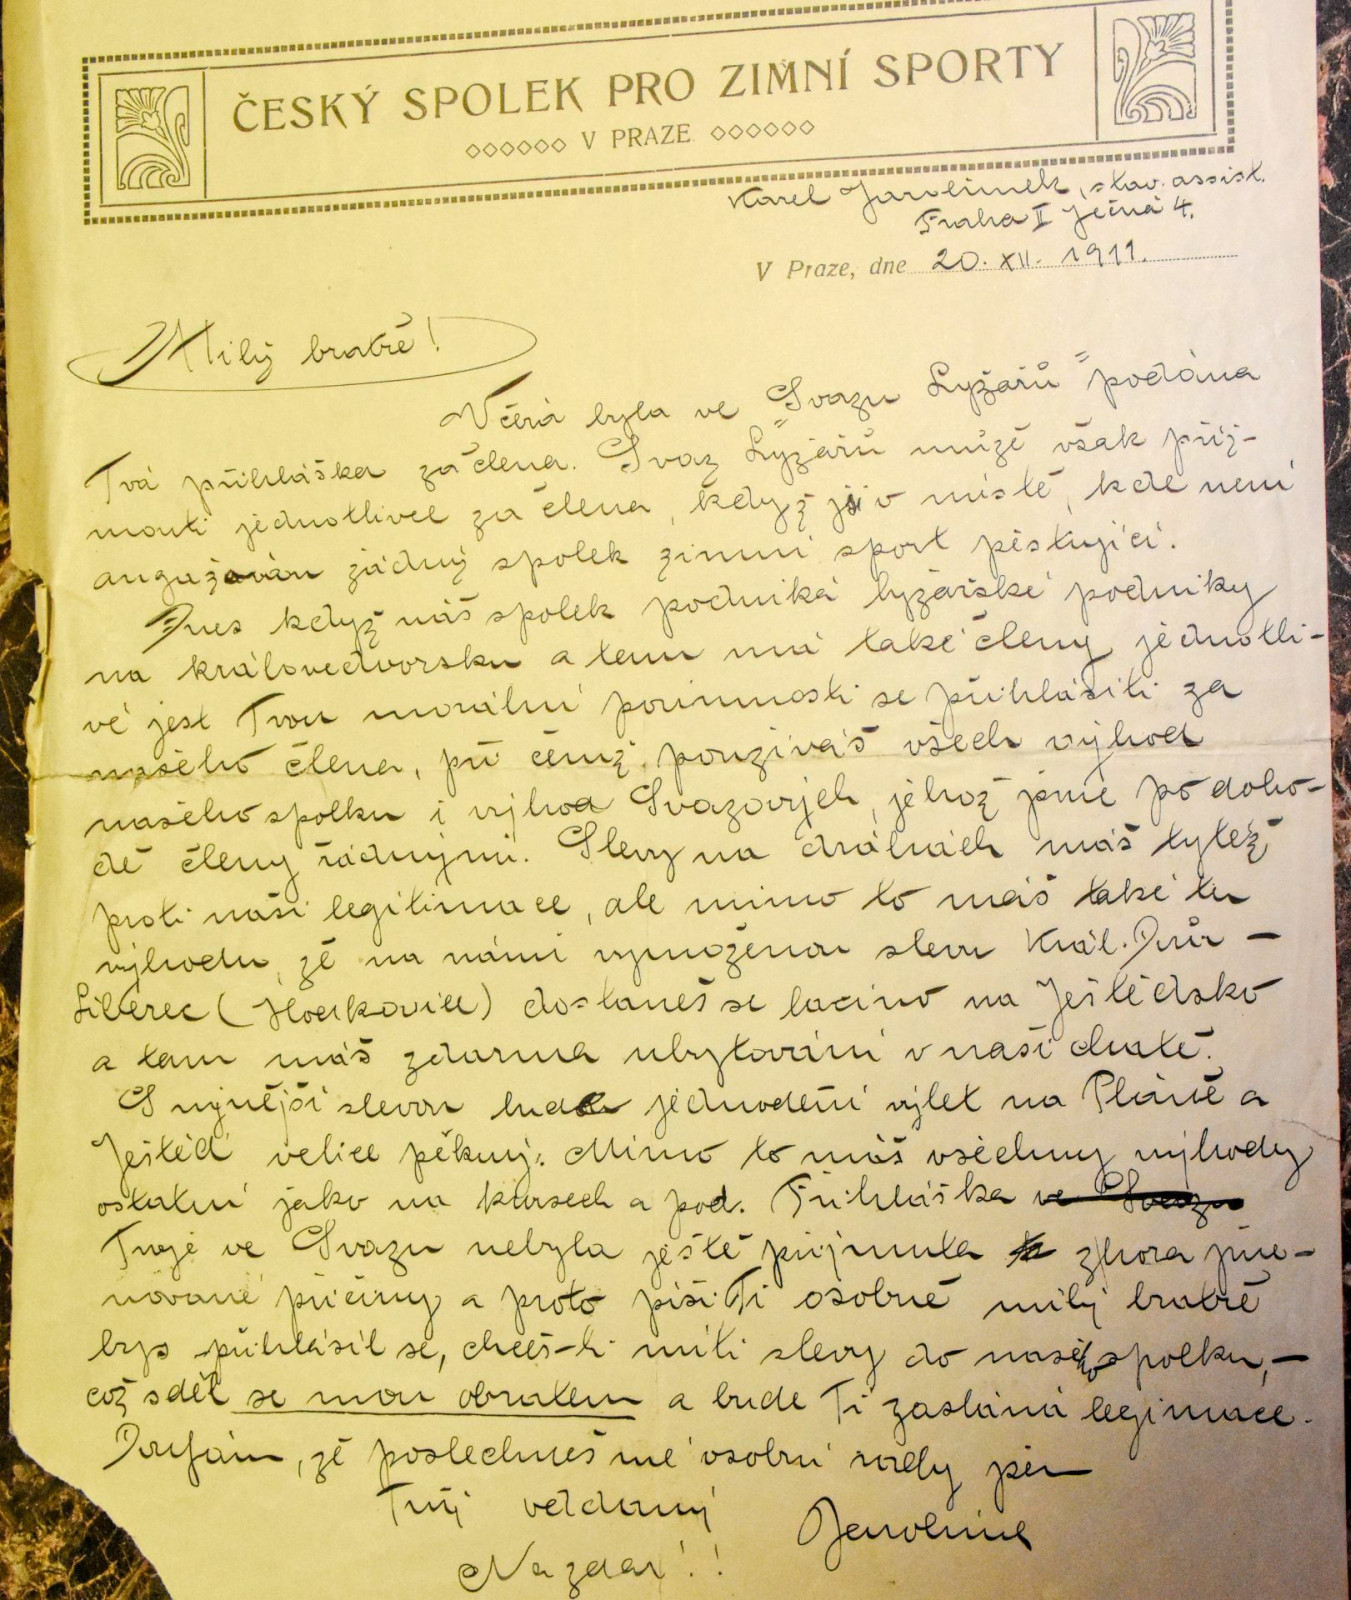 ČESKÝ SPOLEK PRO ZIMNÍ SPORTY
V PRAZE
Karel Jarolímek, stav. assist.
Praha II Ječná 4.
V Praze, dne 20. XII. 1911.
Milý bratře!
Včera byla ve „Svazu Lyžařů" podána
Tvá přihláška za člena. Svaz Lyžařů může však přij-
mouti jednotlivce za člena, když jsi v místě, kde není
angažován žádný spolek zimní sport pěstující.
Dnes když náš spolek podniká lyžařské podniky
na královedvorsku a tam má také členy jednotli-
vé jest Tvou morální povinností se přihlásiti za
našeho člena, při čemž používáš všech výhod
našeho spolku i výhod Svazových, jehož jsme po doho-
dě členy řádnými. Slevy na drahách máš tytéž
proti naší legitimace, ale mimo to máš také tu
výhodu, že na námi vymoženou slevu Král. Dvůr –
Liberec (Hodkovice) dostaneš se lacino na Ještědsko
a tam máš zdarma ubytování v naší chatě.
S nynější slevou bude jednodení výlet na Pláně a
Ještěd velice pěkný. Mimo to máš všechny výhody
ostatní jako na kursech a pod. Přihláška ve Svazu
Tvojé ve Svazu nebyla ještě přijmuta z shora jme-
nované příčiny a proto píši Ti osobně milý bratře
bys přihlásil se, chceš-li míti slevy do našeho spolku, –
což sděl se mnou obratem a bude Ti zaslána legimace.
Doufám, že poslechneš mé osobní rady jsem
Tvůj oddaný
Jarolímek
Na zdar!!